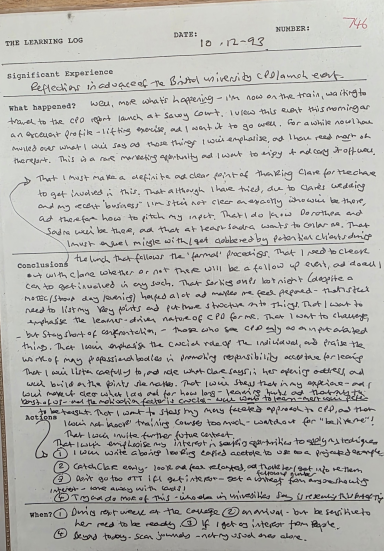 746
THE LEARNING LOG DATE: 10.12.93 NUMBER:
Significant Experience
Reflections in advance of the Bristol university CPD launch event.
What happened? Well, more what's happening - I'm now on the train, waiting to
travel to the CPD report launch at Savoy Court. I view this event this morning as
an excellent profile-lifting exercise, and I want it to go well. For a while now I have
mulled over what I will say and those things I will emphasise, and I have read most of the
report. This is a rare marketing opportunity and I want to enjoy it and carry it off well.
That I must make a definite and clear point of thanking Clare for the chance
to get involved in this. That although I have tried, due to Clare's wedding
and my recent 'business' I'm still not clear on exactly who will be there,
and therefore how to pitch my input. That I do know Dorothea and
Sadie will be there, and that at least Sandra wants to collar me. That
I must ensure I mingle with/get cobbered by potential clients during
Conclusions the lunch that follows the 'formal' proceedings. That I need to check
out with Clare whether or not there will be a follow up event, and does I
can to get involved in any such. That sorting only last night (despite a
notes/study day evening) helped a lot and makes me feel prepared - that I still
need to list my key points and put more structure into things. That I want to
emphasise the learner-driven nature of CPD for me. That I want to challenge,
but stay short of confrontation, - those who see CPD only as an input related
thing. That I will emphasise the crucial role of the individual, and praise the
work of many professional bodies in promoting responsibility acceptance for learning
That I will listen carefully to, and note what Clare says in her opening address, and
will build on the points she makes. That I will stress that in my experience - and I
will make it clear what I do and for how long - learning
to be taught. That I want to stress my many faceted approach to CPD, and that
Actions I will not knock training courses too much - watch out for "be like me"!
That I will invite further future contact.
That I will emphasise my interest in seeking opportunities to apply my techniques
① I will write along looking copied acetate to use as a projected example
② Catch Clare early - look and fear related, and that she'll get into be them
③ Don't go too OTT if I get interest - get a contact from anyone showing
interest - come away with leads!
④ Try and do more of this - who else in universities say
When? ① During next week on the course ② on arrival - but be sensitive to
her need to be ready ③ If I get any interest from people.
④ Beyond today - scan journals - not my usual ones alone.